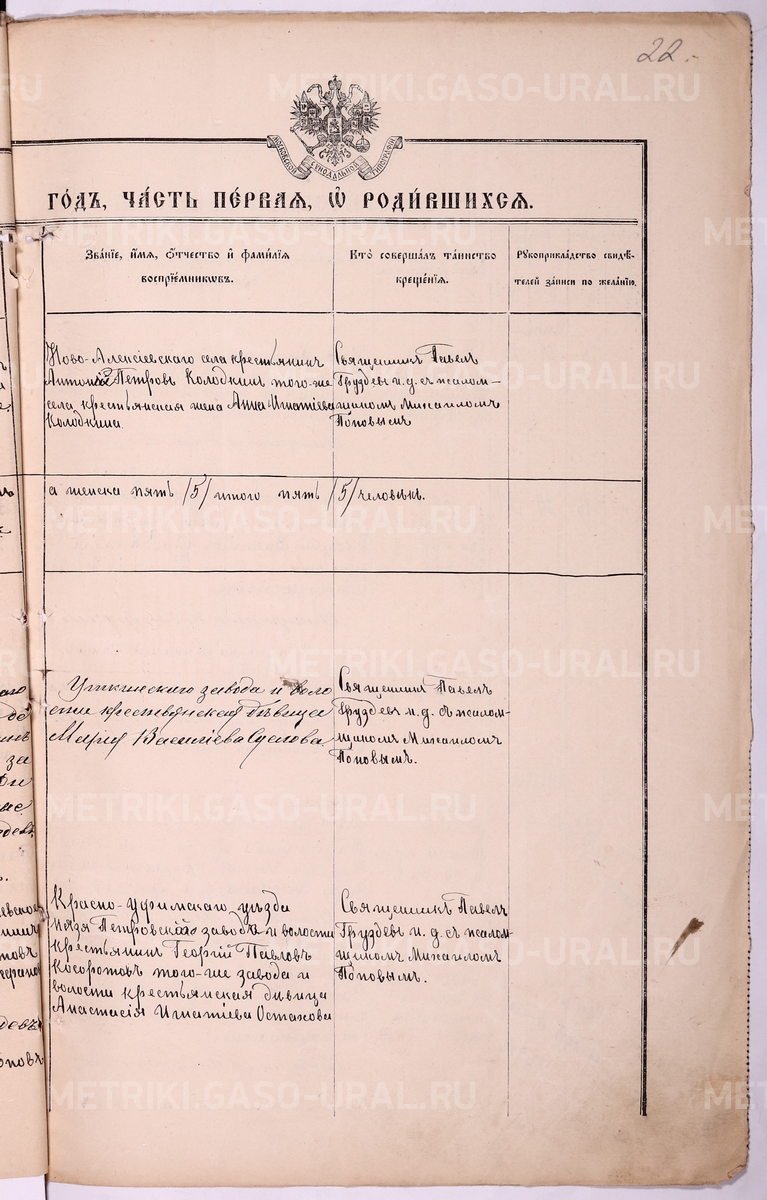 22.
МОСКОВСКОЙ СѴНОДАЛЬНОЙ ТИПОГРАФІИ
ГО́ДЪ, ЧА́СТЬ ПЕ́РВАЯ, Ѽ РОДИ́ВШИХСЯ.
Зва́нїе, и҆́мя, ѻ҆́тчество и҆ фами́лїя
воспрїе́мникѡвъ.
Кто̀ соверша́лъ та́инство
креще́нїя.
Рꙋкоприкла́дство свидѣ́-
телей за́писи по жела́нїю.
Ново-Алексіевскаго села крестьянинъ
Антоній Петровъ Колодкинъ того-же
села крестьянская жена Анна Игнатіева
Колодкина.
Священникъ Павелъ
Груздевъ и. д. съ псалом-
щикомъ Михаиломъ
Поповымъ
а женска пять /5/ итого пять /5/ человѣкъ.
Уткинскаго завода и воло
сти крестьянская дѣвица
Марія Василіева Суслова.
Священникъ Павелъ
Груздевъ и. д. съ псалом-
щикомъ Михаиломъ
Поповымъ.
Красно-Уфимскаго уѣзда
Нязя Петровскаго завода и волости
крестьянинъ Георгій Павловъ
Косоротовъ того-же завода и
волости крестьянская дѣвица
Анастасія Игнатіева Остахова
Священникъ Павелъ
Груздевъ и. д. съ псалом-
щикомъ Михаиломъ
Поповымъ.
METRIKI.GASO-URAL.RU